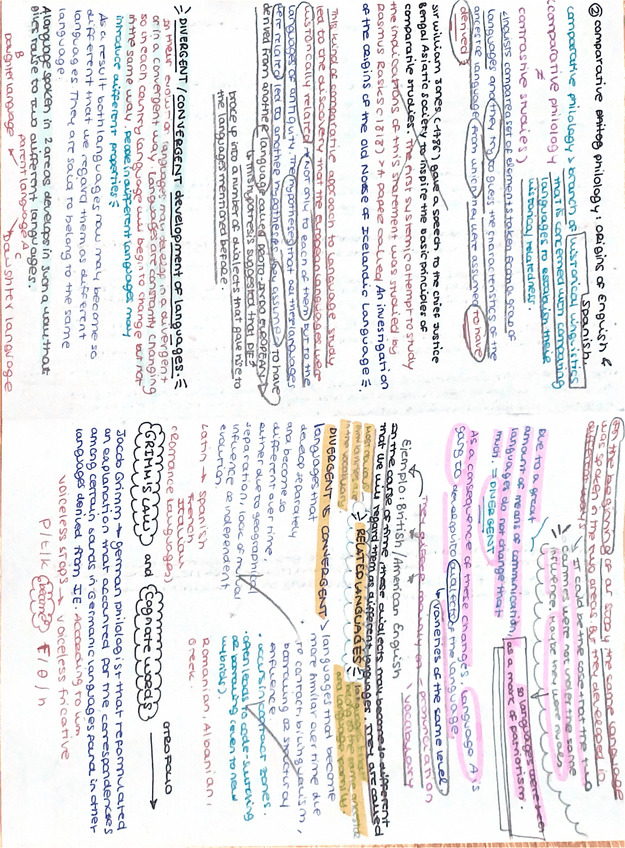 ② comparative philology: origins of English & Spanish
comparative philology > branch of historical linguistics
that is concerned with comparing
languages to establish their
historical relatedness.
comparative philology
≠
contrastive studies
linguists compare a set of elements taken from a group of
languages and they try to guess the characteristics of the
ancestor language from which they were assumed to have
derived
Sir William Jones (1786) gave a speech to the chief justice
Bengal Asiatic Society to inspire the basic principles of
comparative studies. The first systemic attempt to study
the implications of this statement was studied by
Rasmus Rask (1818) → paper called: An investigation
of the origins of the Old Norse or Icelandic language
This kind of comparative approach to language study
led to the discovery that the european languages were
historically related. Not only to each of them but to the
languages of antiquity. The hypothesis that all these languages
were related led to another hypothesis: they assume to have
derived from another language called proto-indo european
This hypothesis suggested that PIE
broke up into a number of dialects that gave rise to
the languages mentioned before.
DIVERGENT / CONVERGENT development of languages:
In their evolution languages may develop in a divergent
or in a convergent way. Languages are constantly changing
so in each country language would begin to change but not
in the same way. People in different languages may
introduce different properties
As a result both languages now may become so
different that we regard them as different
languages. They are said to belong to the same
language.
A language spoken in 2 areas develops in such a way that
gives raise to two different languages.
parent language A
B
C
Daughter language
Daughter language
In the beginning of our story the same language
was spoken in the two areas but they developed in
different ways.
It could be the case that the two
countries were not under the same
influence. Maybe they were
Due to a great
amount of means of communication,
languages do not change that
much = DIVERGENT
so languages were kept
as a mark of patriotism.
As a consequence of these changes language A is
going to be split into dialects of the language.
varieties of the same level
Ejemplo: British / American English
They differ mainly in - pronunciation
- vocabulary
In the course of time these dialects may become so different
that we will regard them as different languages. They are called
RELATED LANGUAGES
DIVERGENT & CONVERGENT >
languages that
develop separately
and become so
different over time
either due to geographical
separation, lack of mutual
influence or independent
evolution
languages that become
more similar over time due
to contact, bilingualism,
borrowing or structural
influence
• occurs in contact zones.
• often leads to code-switching
or borrowing (even to new
hybrids).
Latin → Spanish
French
Italian
(romance languages)
Romanian, Albanian,
Greek.
GRIMM'S LAW and Cognate words
OTRO FOLIO
Jacob Grimm → german philologist that reformulated
an explanation that accounted for the correspondences
among certain sounds in Germanic languages found in other
languages derived from IE. According to him
voiceless stops → voiceless fricative
p/t/k become f/θ/h